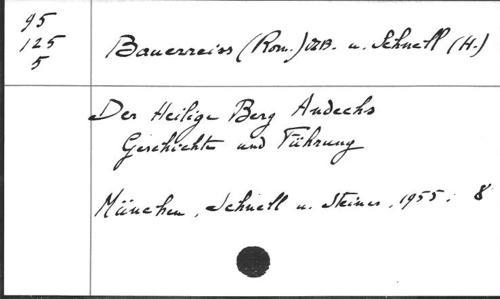 95
125
5
Bauerreiss (Rom.) OSB. u. Schnell (H.)
Der Heilige Berg Andechs
Geschichte und Führung
München, Schnell u. Steiner, 1955. 8°